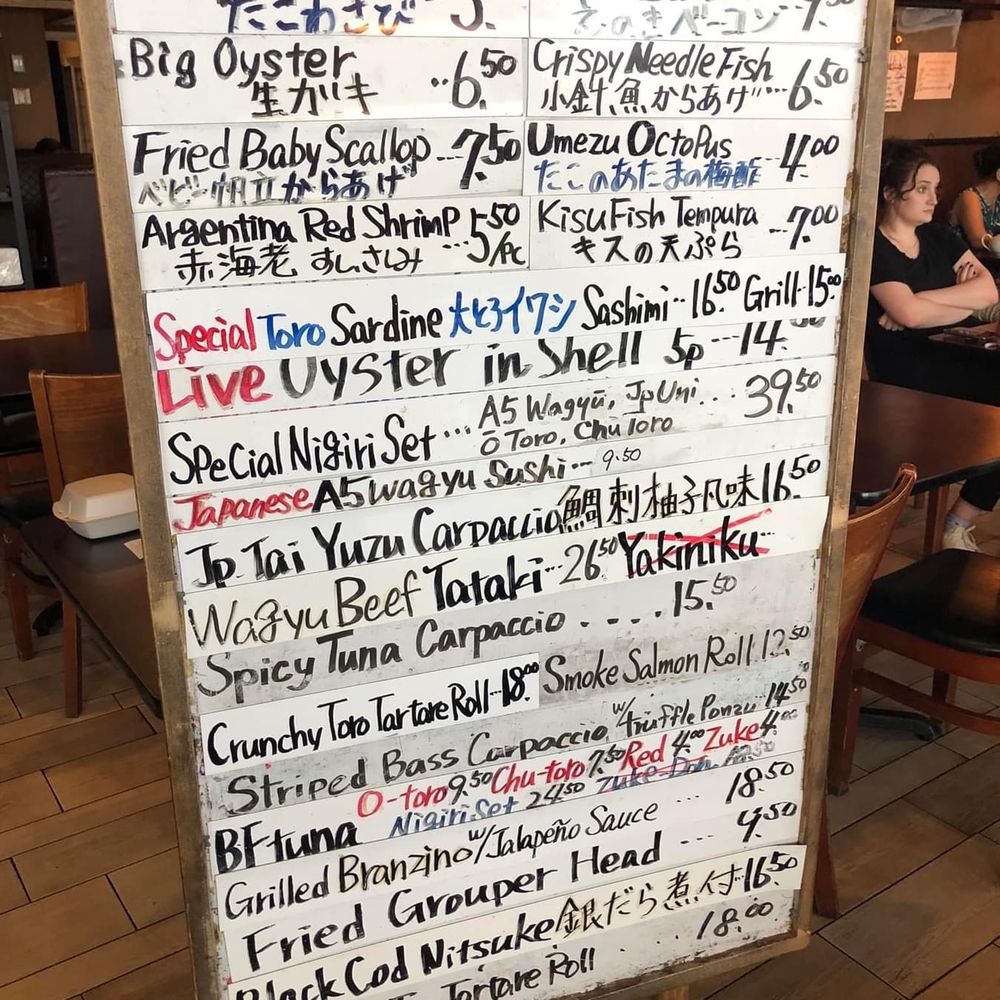 たこわさび 5.
えのきベーコン 7.50
Big Oyster ..6.50
生ガキ
Crispy Needle Fish
小針魚からあげ... 6.50
Fried Baby Scallop...7.50
ベビー帆立からあげ
Umezu Octopus ...4.00
たこのあたまの梅酢
Argentina Red Shrimp 5.50
赤海老 すし さしみ ... /Pc
Kisu Fish Tempura ...7.00
キスの天ぷら
Special Toro Sardine 大とろイワシ Sashimi..16.50 Grill.15.00
Live Oyster in Shell 5p...14.
Special Nigiri Set ... A5 Wagyū, Jp Uni... 39.50
Ō Toro, Chu Toro
Japanese A5 Wagyu Sushi... 9.50
Jp Tai Yuzu Carpaccio 鯛刺柚子風味 16.50
Wagyu Beef Tataki...26.50 Yakiniku..
Spicy Tuna Carpaccio . . . . 15.50
Crunchy Toro Tartare Roll..18.00
Smoke Salmon Roll 12.50
Striped Bass Carpaccio w/Truffle Ponzu 14.50
BF tuna O-toro 9.50 Chu-toro 7.50 Red 4.00 Zuke 4.00
Nigiri Set 24.50 Zuke-Don
Grilled Branzino w/Jalapeño Sauce ... 18.50
Fried Grouper Head ... 9.50
Black Cod Nitsuke 銀だら煮付 16.50
Tartare Roll . . . 18.00